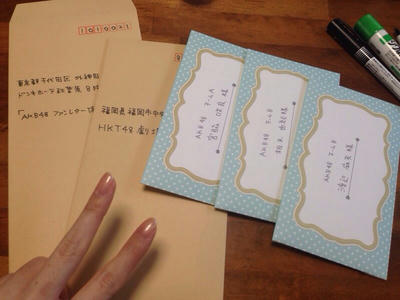 1010021
東京都千代田区 外神田
ドンキホーテ秋葉原 8
「AKB48 ファンレター
福岡県福岡市中央
HKT48
AKB48 チームA
宮脇 咲良 様
AKB48 チームB
柏木 由紀 様
AKB48 チームB
渡辺 麻友 様